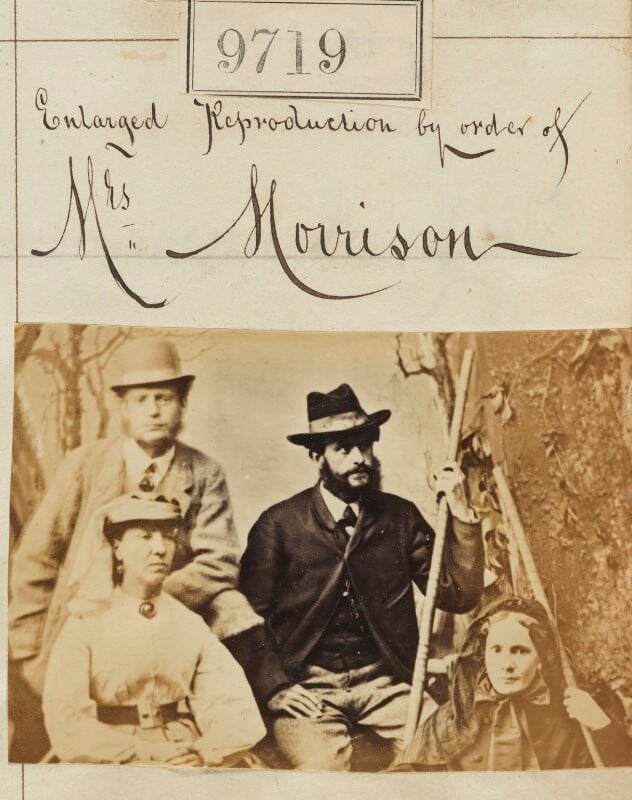 9719
Enlarged Reproduction by order of
Mrs Morrison